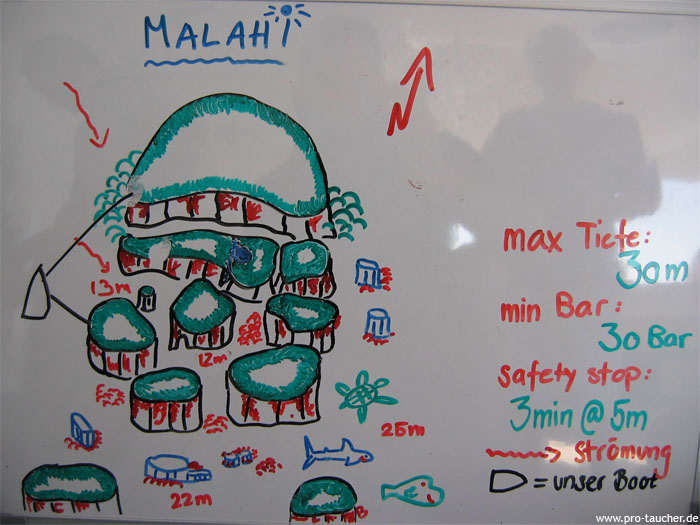 MALAHI
N
max Tiefe:
30m
13m
min Bar:
30 Bar
12m
safety stop:
3min @ 5m
25m
strömung
22m
= unser Boot
www.pro-taucher.de